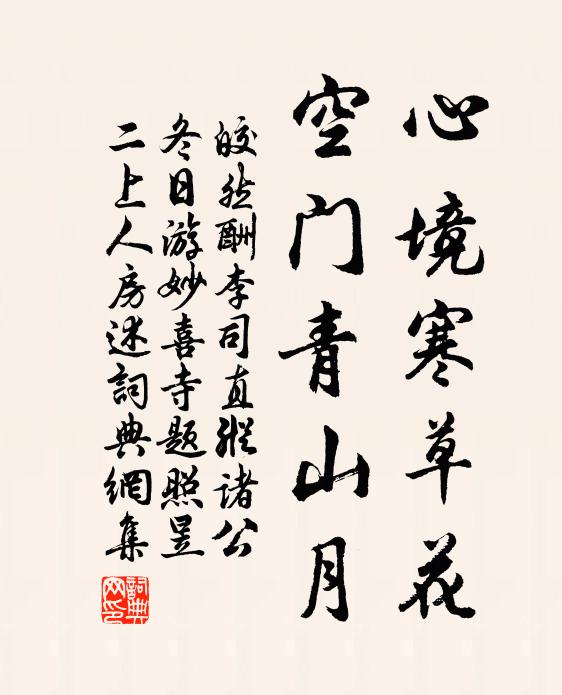 心境寒草花
空門青山月
皎然酬李司直縱諸公
冬日游妙喜寺题照昱
二上人房述詞典網集
詞典
网印